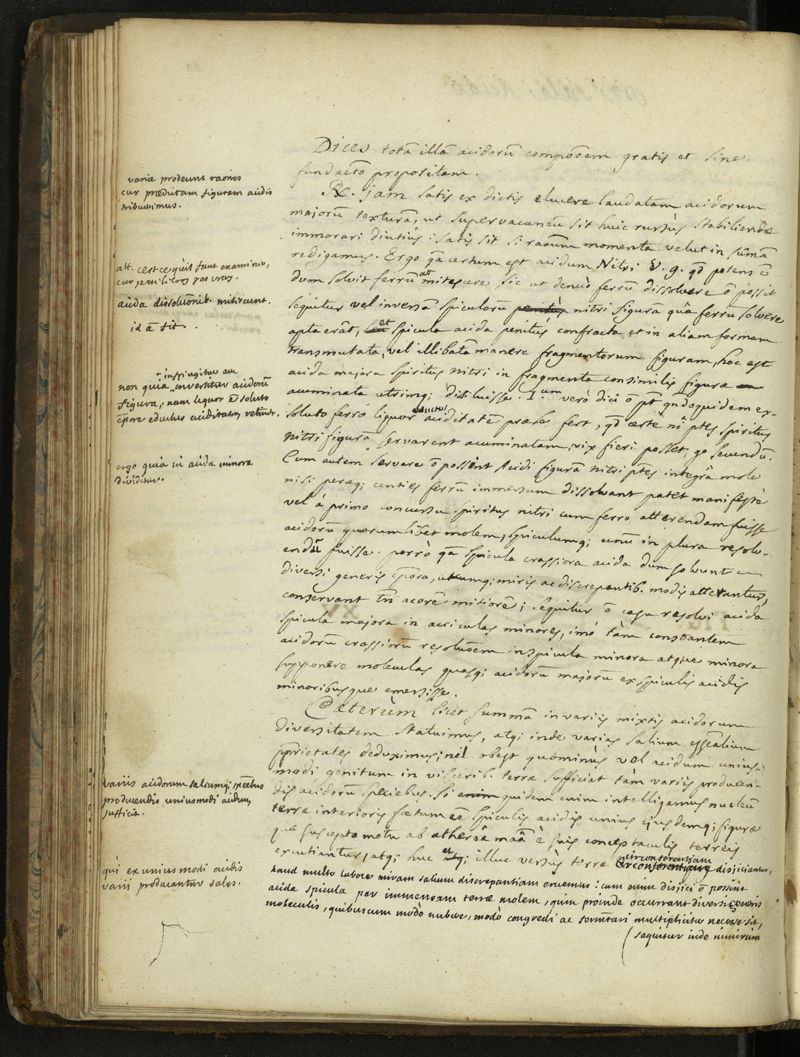 Dices totā illā acidorū compoōem gratis et sine
fundaēto propositam.
℞. jam satis ex dictis elucere laudatam acidorum
majorū texturā, ut supervacanēū sit huic rursus stabiliendæ
immorari diutius: satis sit si raōnum momenta velut in sūmā
redigamus. Ergo qā certum est acidum Nitri v. g. qd potens ē
dum solvit ferrū mitescere sic ut denuo ferrū dissolvere ō possit
sequitur vel inversā spiculorū nitri figurā quā ferrū solvere
apta erāt, et spicula acida penitus confracta et in aliam formam
transmutata, vel illibatā manere fragmentorum figuram, hoc est
acida majora spiritus nitri in fragmenta consimilis figuræ
acuminata utrinq; dissiluisse. 1um vero dici ō pt qndoquidem ex
soluto ferro liquor eductus aciditatē præse fert, qd certe ni ptes spiritus
nitri figurā servarent acuminatam, vix fieri posset, go secundū.
Cum autem servare ō possent acidi figurā nitri ptes integrā mole
nisi peraq; centies ferrū immersum dissolvant patet manifestè
vel à primo concursu spiritus nitri cum ferro atterendam fuisse
acidorū quorumlibet molem, spiculumq; unū in plura resolv-
endū fuisse. porrò qā spicula crassiora acida dum solvunt
diversi generis cpora, utcumq; miris ac discrepantib. modis atterantur,
conservant tn̄ acorē mitiorē; sequitur ō casu resolvi acida
spicula majora in acciculas minores, imò tàm constantem
acidorū crassiorū resoluōem in spicula minora atque minora
supponere moleculas quasq; acidorū majorū ex spiculis acidis
minoribusque emersisse.
Cæterùm licet summā in variis mixtis acidorum
diversitatem statuimus, atq; inde varias salium essēalium
pprietates deduximus; nil obest quominùs vel acidum unius-
modi genitum in viscerib. terræ sufficiat tàm variis producen-
dis acidorū speciebus. Si quidem enim intelligamus nucleū
terræ interioris fœtum eē spiculis acidis unius ejusdemq; figuræ
quæ suscepto motu ab ætherea maā è suis conceptaculis terreis
excutiantur, atq; huc et illuc versus terræ circonferentiam disjiciantur,
haud multo labore miram salium discrepantiam eruemus: cum enim disjici ō possint
acida spicula per immensam terræ molem, quin proinde occurrant diversi gēneris
moleculis, quibuscum modò nubere, modò congredi ac seruntari multipliciter necesse sit,
sequitur inde nimirùm
variæ prodeunt raones
cur præditam figuram acidis
tribuimus.
att. certe quis sunt examine,
acida dissolutiōib. mitescunt.
id ā fit.
non quia infringitur aut invertitur acidorū
figura, nam liquor ē soluto
cpore eductus aciditatem retinet.
ergo quia in acida minora
dividitur.
variis acidorum saliumq; speebus
producendis uniusmodi acidum
sufficit.
qui ex unius modi acidis
varii producantur sales.